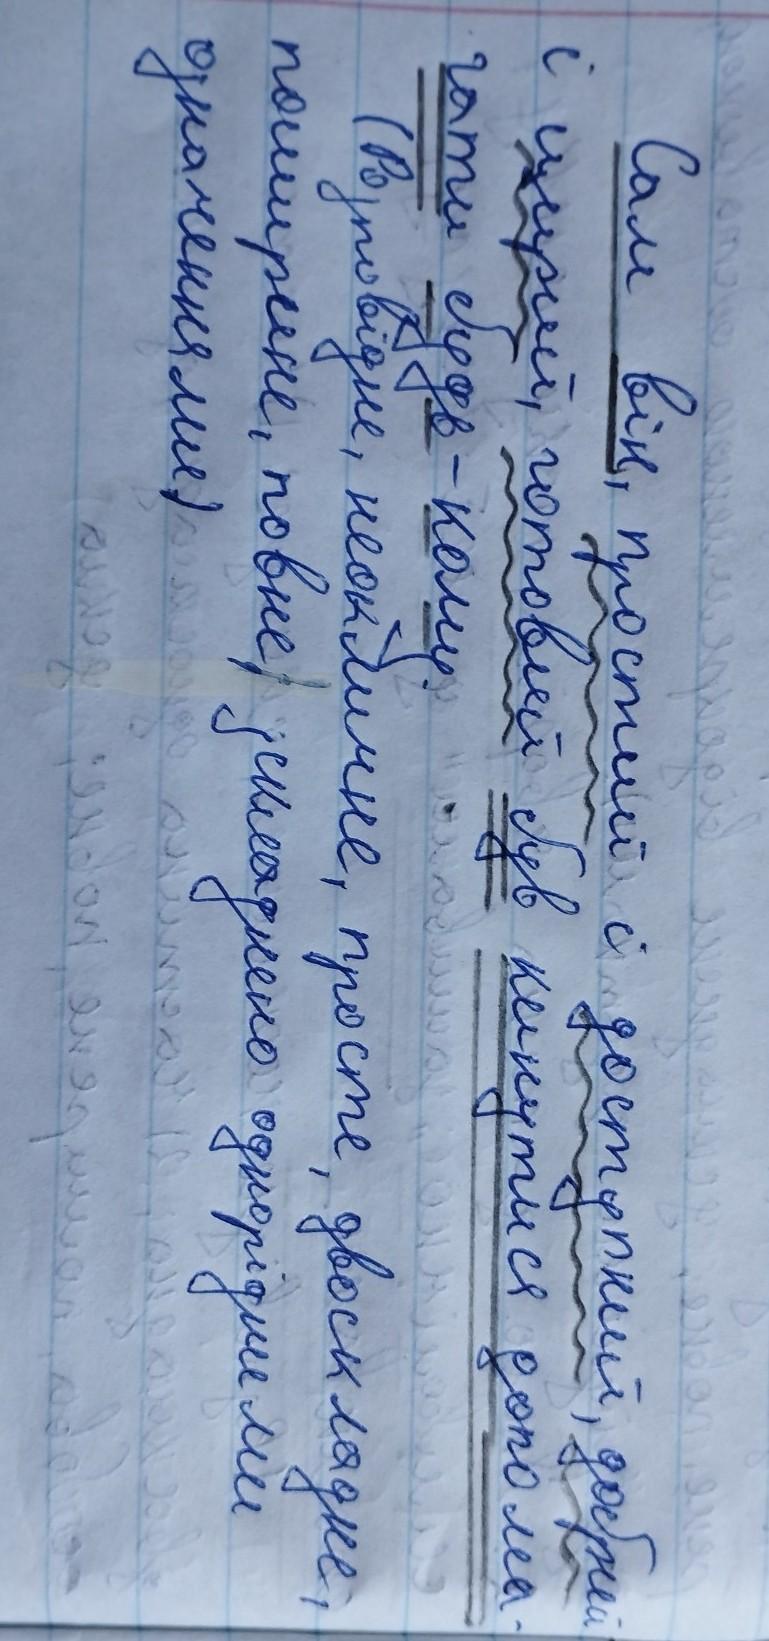 Сам він, простий і доступний, добрий
і щирий, готовий був кинутися допома-
гати будь-кому.
(Розповідне, неокличне, просте, двоскладне,
поширене, повне, ускладнено однорідними
означеннями)